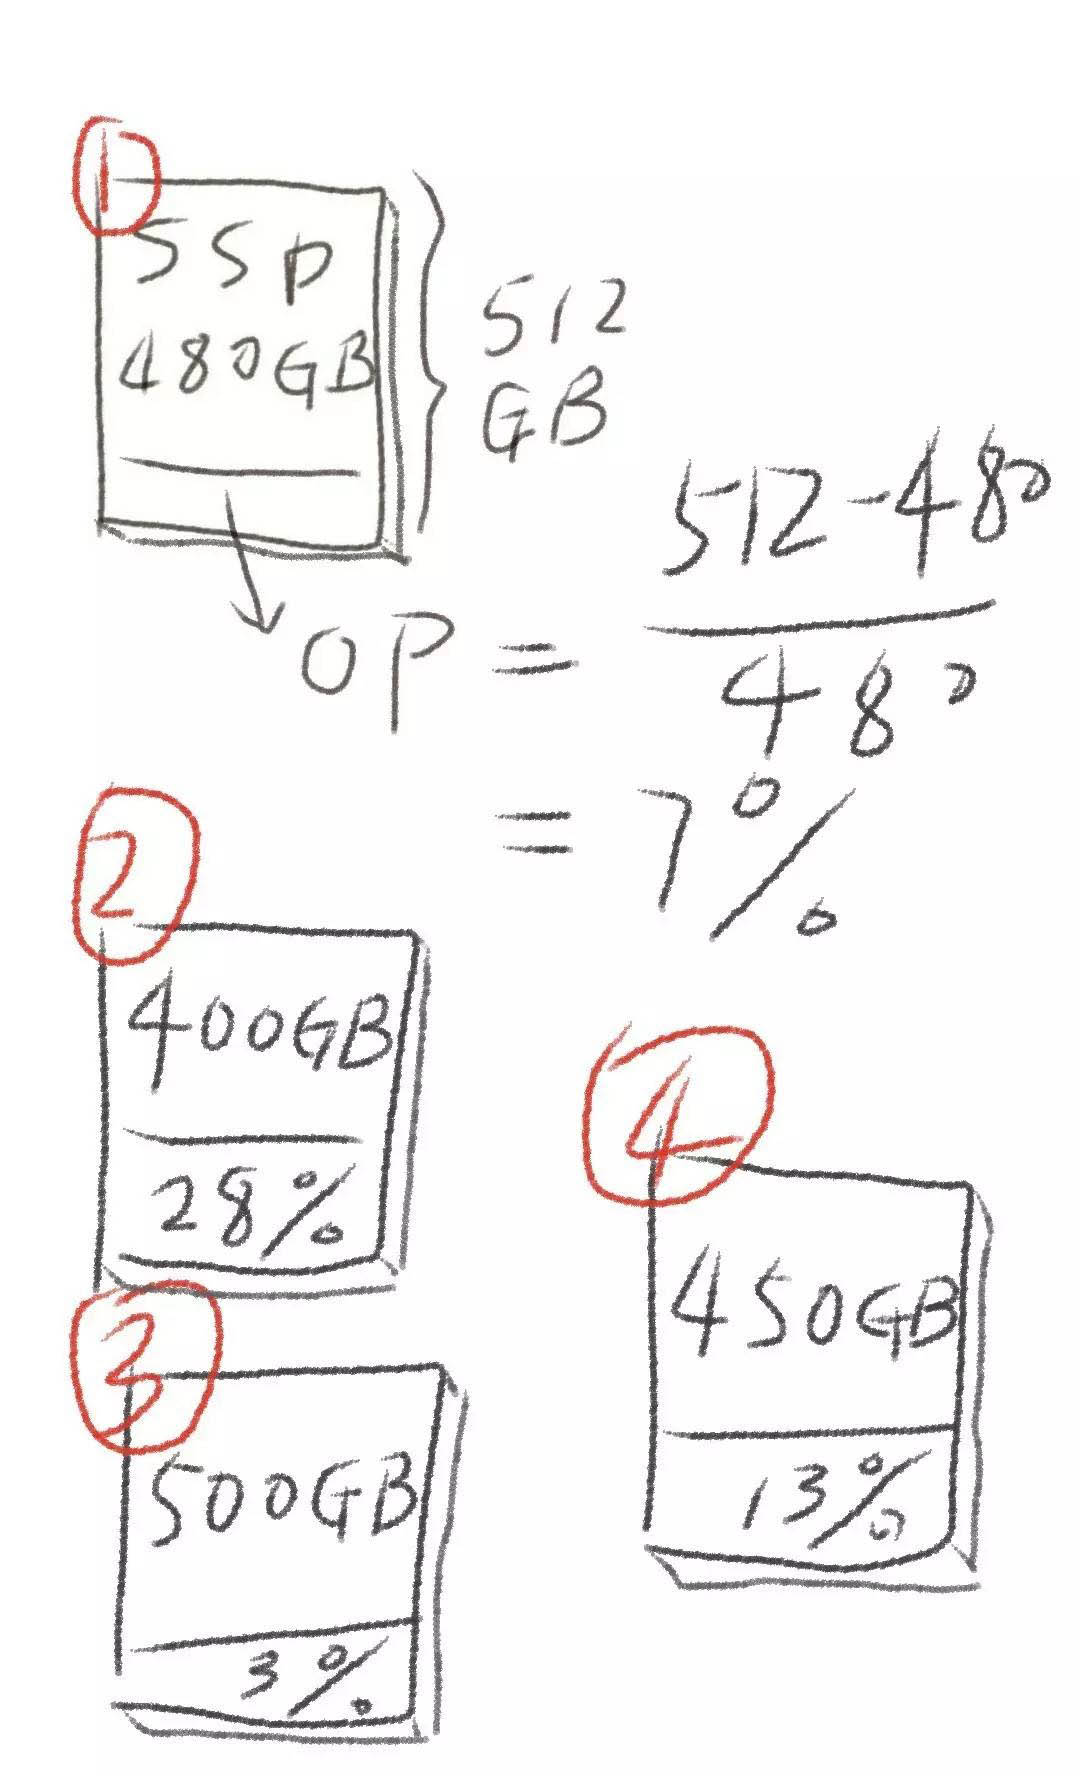 1
SSD
480GB
512
GB
OP = 512-480
480
= 7%
2
400GB
28%
3
500GB
3%
4
450GB
13%